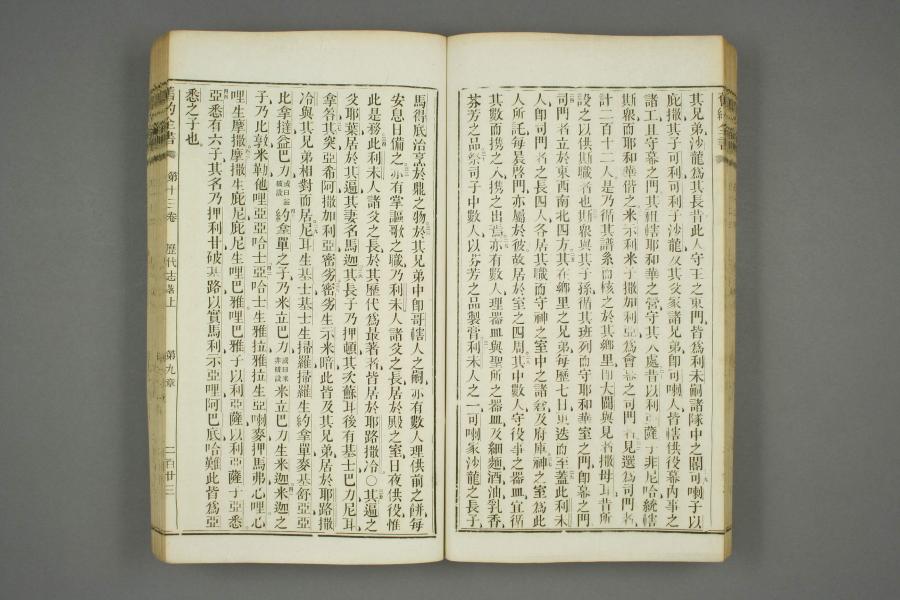 其兄弟沙龍爲其長昔此人守王之東門皆爲利未嗣諸隊中之閽可喇子以
庇撒其子可利可利子沙龍及其父家諸兄弟卽可喇人皆轄供役幕內事之
諸工且守幕之門其祖轄耶和華之營守其入處昔以利亞薩子非尼哈統轄
斯眾而耶和華偕之米示利米子撒加利亞爲會幕之司門者見選爲司門者
計二百十二人是乃循其譜系而核之於其鄉里門大闢與見者撒母耳昔所
設之以供斯職者也斯眾與其子孫循其班列而守耶和華室之門卽幕之門
司門者立於東西南北四方其在鄉里之兄弟每歷七日更迭而至蓋此利未
人卽司門者之長四人各居其職而守神之室中之諸倉及府庫神之室爲此
人所託每晨啓門亦屬於彼故居於室之四周其中數人守役事之器皿宜循
其數而携之入携之出焉亦有數人理器皿與聖所之器皿及細麵酒油乳香
芬芳之品祭司子中數人以芬芳之品製膏利未人之一可喇家沙龍之長子
馬得底治烹於鼎之物於其兄弟中卽哥轄人之嗣亦有數人理供前之餅每
安息日備之亦有掌謳歌之職乃利未人諸父之長居於殿之室日夜供役惟
此是務此利未人諸父之長於其歷代爲最著者皆居於耶路撒冷○其遍之
父耶葉居於其遍其妻名馬迦其長子乃押頓其次蘇耳後有基士巴力尼耳
拿答其突亞希阿撒加利亞密劣密劣生示米暗此皆及其兄弟居於耶路撒
冷與其兄弟相對而居尼耳生基士基士生掃羅掃羅生約拿單麥基舒亞亞
比拿撻益巴力約拿單之子乃米立巴力米立巴力生米迦米迦之
子乃比敦米勒他哩亞亞哈士亞哈士生雅拉雅拉生亞喇麥押馬弗心哩心
哩生摩撒摩撒生庇尼庇尼生哩巴雅哩巴雅子以利亞薩以利亞薩子亞悉
亞悉有六子其名乃押利甘破基路以實馬利示亞哩阿巴底哈難此皆爲亞
悉之子也
舊約全書
第十三卷
歷代志畧上
第九章
二百廿三